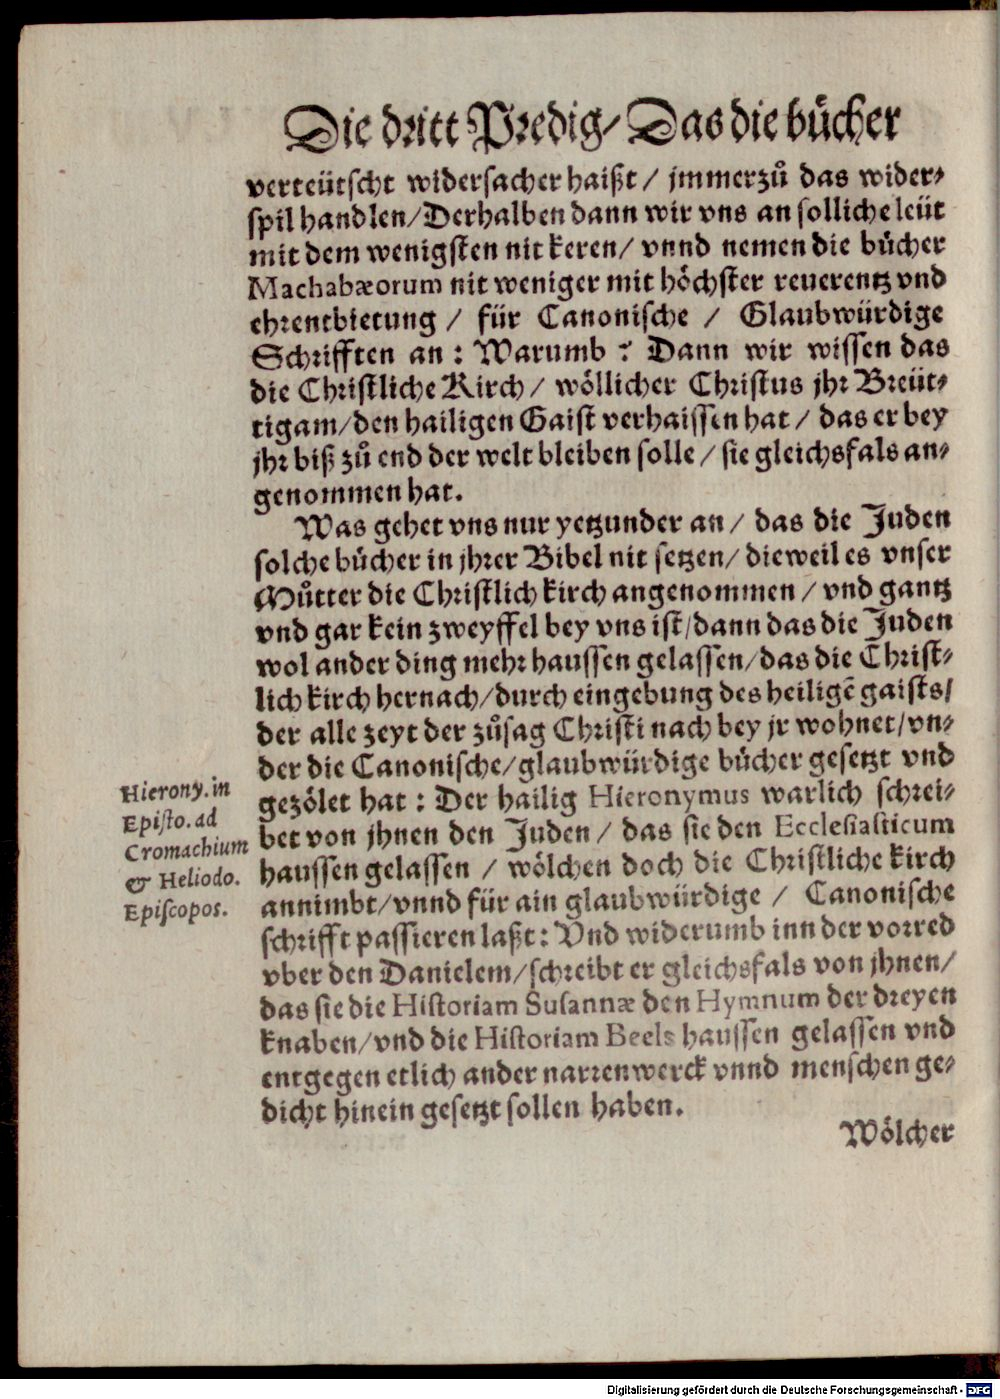 Die dritt Predig/ Das die bůcher
verteütscht widersacher haißt / jmmerzů das wider-
spil handlen/ Derhalben dann wir vns an solliche leüt
mit dem wenigsten nit keren/ vnnd nemen die bůcher
Machabæorum nit weniger mit höchster reuerentz vnd
ehrentbietung / für Canonische / Glaubwürdige
Schrifften an : Warumb ? Dann wir wissen das
die Christliche Kirch / wöllicher Christus jhr Breüt-
tigam/ den hailigen Gaist verhaissen hat / das er bey
jhr biß zů end der welt bleiben solle / sie gleichsfals an-
genommen hat.
Was gehet vns nur yetzunder an / das die Juden
solche bůcher in jhrer Bibel nit setzen/ dieweil es vnser
Můtter die Christlich kirch angenommen / vnd gantz
vnd gar kein zweyffel bey vns ist/ dann das die Juden
wol ander ding mehr haussen gelassen/ das die Christ-
lich kirch hernach/ durch eingebung des heiligē gaists/
der alle zeyt der zůsag Christi nach bey jr wohnet/ vn-
der die Canonische/ glaubwürdige bůcher gesetzt vnd
gezölet hat : Der hailig Hieronymus warlich schrei-
bet von jhnen den Juden / das sie den Ecclesiasticum
haussen gelassen / wölchen doch die Christliche kirch
annimbt/ vnnd für ain glaubwürdige / Canonische
schrifft passieren laßt : Vnd widerumb inn der vorred
vber den Danielem/ schreibt er gleichsfals von jhnen/
das sie die Historiam Susannæ den Hymnum der dreyen
knaben/ vnd die Historiam Beels haussen gelassen vnd
entgegen etlich ander narrenwerck vnnd menschen ge-
dicht hinein gesetzt sollen haben.
Wölcher
Hierony. in
Episto. ad
Cromachium
& Heliodo.
Episcopos.
Digitalisierung gefördert durch die Deutsche Forschungsgemeinschaft - DFG